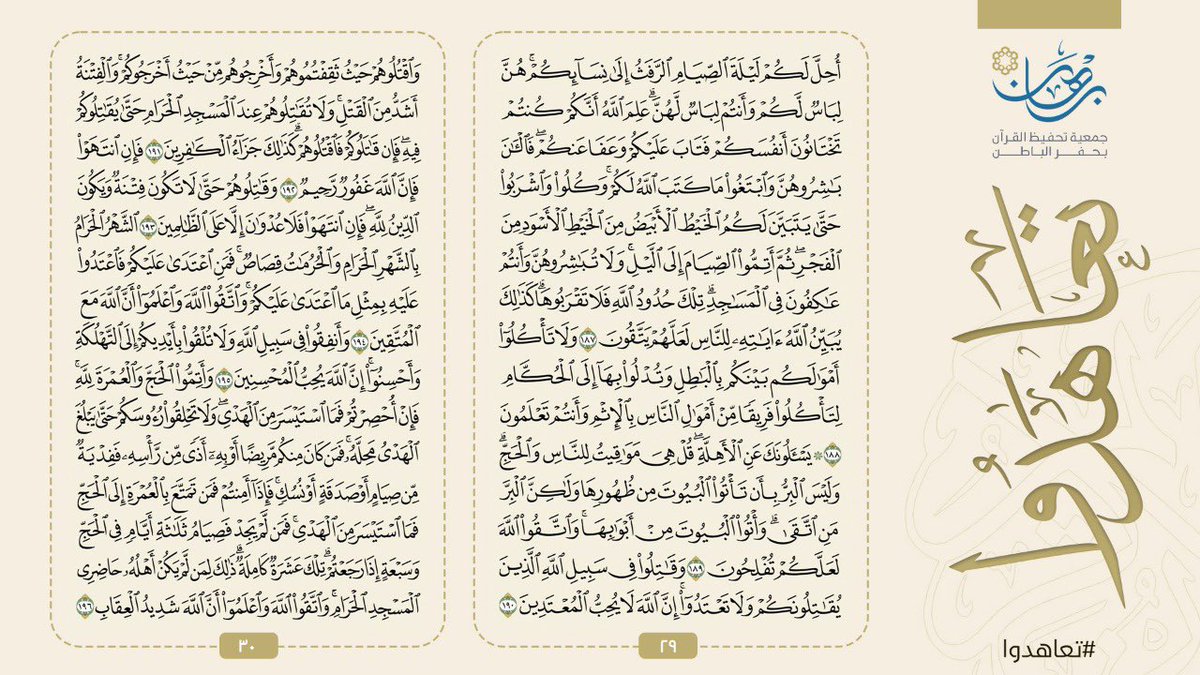 برهان
جمعية تحفيظ القرآن
بحفر الباطن
تعاهدوا
#تعاهدوا
أُحِلَّ لَكُمْ لَيْلَةَ ٱلصِّيَامِ ٱلرَّفَثُ إِلَىٰ نِسَآئِكُمْ ۚ هُنَّ
لِبَاسٌ لَّكُمْ وَأَنتُمْ لِبَاسٌ لَّهُنَّ ۗ عَلِمَ ٱللَّهُ أَنَّكُمْ كُنتُمْ
تَخْتَانُونَ أَنفُسَكُمْ فَتَابَ عَلَيْكُمْ وَعَفَا عَنكُمْ ۖ فَٱلْـَٰٔنَ
بَـٰشِرُوهُنَّ وَٱبْتَغُوا۟ مَا كَتَبَ ٱللَّهُ لَكُمْ ۚ وَكُلُوا۟ وَٱشْرَبُوا۟
حَتَّىٰ يَتَبَيَّنَ لَكُمُ ٱلْخَيْطُ ٱلْأَبْيَضُ مِنَ ٱلْخَيْطِ ٱلْأَسْوَدِ مِنَ
ٱلْفَجْرِ ۖ ثُمَّ أَتِمُّوا۟ ٱلصِّيَامَ إِلَى ٱلَّيْلِ ۚ وَلَا تُبَـٰشِرُوهُنَّ وَأَنتُمْ
عَـٰكِفُونَ فِى ٱلْمَسَـٰجِدِ ۗ تِلْكَ حُدُودُ ٱللَّهِ فَلَا تَقْرَبُوهَا ۗ كَذَٰلِكَ
يُبَيِّنُ ٱللَّهُ ءَايَـٰتِهِۦ لِلنَّاسِ لَعَلَّهُمْ يَتَّقُونَ ١٨٧ وَلَا تَأْكُلُوٓا۟
أَمْوَٰلَكُم بَيْنَكُم بِٱلْبَـٰطِلِ وَتُدْلُوا۟ بِهَآ إِلَى ٱلْحُكَّامِ
لِتَأْكُلُوا۟ فَرِيقًا مِّنْ أَمْوَٰلِ ٱلنَّاسِ بِٱلْإِثْمِ وَأَنتُمْ تَعْلَمُونَ
١٨٨ ۞ يَسْـَٔلُونَكَ عَنِ ٱلْأَهِلَّةِ ۖ قُلْ هِىَ مَوَٰقِيتُ لِلنَّاسِ وَٱلْحَجِّ ۗ
وَلَيْسَ ٱلْبِرُّ بِأَن تَأْتُوا۟ ٱلْبُيُوتَ مِن ظُهُورِهَا وَلَـٰكِنَّ ٱلْبِرَّ
مَنِ ٱتَّقَىٰ ۗ وَأْتُوا۟ ٱلْبُيُوتَ مِنْ أَبْوَٰبِهَا ۚ وَٱتَّقُوا۟ ٱللَّهَ
لَعَلَّكُمْ تُفْلِحُونَ ١٨٩ وَقَـٰتِلُوا۟ فِى سَبِيلِ ٱللَّهِ ٱلَّذِينَ
يُقَـٰتِلُونَكُمْ وَلَا تَعْتَدُوٓا۟ ۚ إِنَّ ٱللَّهَ لَا يُحِبُّ ٱلْمُعْتَدِينَ ١٩٠
٢٩
وَٱقْتُلُوهُمْ حَيْثُ ثَقِفْتُمُوهُمْ وَأَخْرِجُوهُم مِّنْ حَيْثُ أَخْرَجُوكُمْ ۚ وَٱلْفِتْنَةُ
أَشَدُّ مِنَ ٱلْقَتْلِ ۚ وَلَا تُقَـٰتِلُوهُمْ عِندَ ٱلْمَسْجِدِ ٱلْحَرَامِ حَتَّىٰ يُقَـٰتِلُوكُمْ
فِيهِ ۖ فَإِن قَـٰتَلُوكُمْ فَٱقْتُلُوهُمْ ۗ كَذَٰلِكَ جَزَآءُ ٱلْكَـٰفِرِينَ ١٩١ فَإِنِ ٱنتَهَوْا۟
فَإِنَّ ٱللَّهَ غَفُورٌ رَّحِيمٌ ١٩٢ وَقَـٰتِلُوهُمْ حَتَّىٰ لَا تَكُونَ فِتْنَةٌ وَيَكُونَ
ٱلدِّينُ لِلَّهِ ۖ فَإِنِ ٱنتَهَوْا۟ فَلَا عُدْوَٰنَ إِلَّا عَلَى ٱلظَّـٰلِمِينَ ١٩٣ ٱلشَّهْرُ ٱلْحَرَامُ
بِٱلشَّهْرِ ٱلْحَرَامِ وَٱلْحُرُمَـٰتُ قِصَاصٌ ۚ فَمَنِ ٱعْتَدَىٰ عَلَيْكُمْ فَٱعْتَدُوا۟
عَلَيْهِ بِمِثْلِ مَا ٱعْتَدَىٰ عَلَيْكُمْ ۚ وَٱتَّقُوا۟ ٱللَّهَ وَٱعْلَمُوٓا۟ أَنَّ ٱللَّهَ مَعَ
ٱلْمُتَّقِينَ ١٩٤ وَأَنفِقُوا۟ فِى سَبِيلِ ٱللَّهِ وَلَا تُلْقُوا۟ بِأَيْدِيكُمْ إِلَى ٱلتَّهْلُكَةِ ۛ
وَأَحْسِنُوٓا۟ ۛ إِنَّ ٱللَّهَ يُحِبُّ ٱلْمُحْسِنِينَ ١٩٥ وَأَتِمُّوا۟ ٱلْحَجَّ وَٱلْعُمْرَةَ لِلَّهِ ۚ
فَإِنْ أُحْصِرْتُمْ فَمَا ٱسْتَيْسَرَ مِنَ ٱلْهَدْىِ ۖ وَلَا تَحْلِقُوا۟ رُءُوسَكُمْ حَتَّىٰ يَبْلُغَ
ٱلْهَدْىُ مَحِلَّهُۥ ۚ فَمَن كَانَ مِنكُم مَّرِيضًا أَوْ بِهِۦٓ أَذًى مِّن رَّأْسِهِۦ فَفِدْيَةٌ
مِّن صِيَامٍ أَوْ صَدَقَةٍ أَوْ نُسُكٍ ۚ فَإِذَآ أَمِنتُمْ فَمَن تَمَتَّعَ بِٱلْعُمْرَةِ إِلَى ٱلْحَجِّ
فَمَا ٱسْتَيْسَرَ مِنَ ٱلْهَدْىِ ۚ فَمَن لَّمْ يَجِدْ فَصِيَامُ ثَلَـٰثَةِ أَيَّامٍ فِى ٱلْحَجِّ
وَسَبْعَةٍ إِذَا رَجَعْتُمْ ۗ تِلْكَ عَشَرَةٌ كَامِلَةٌ ۗ ذَٰلِكَ لِمَن لَّمْ يَكُنْ أَهْلُهُۥ حَاضِرِى
ٱلْمَسْجِدِ ٱلْحَرَامِ ۚ وَٱتَّقُوا۟ ٱللَّهَ وَٱعْلَمُوٓا۟ أَنَّ ٱللَّهَ شَدِيدُ ٱلْعِقَابِ ١٩٦
٣٠